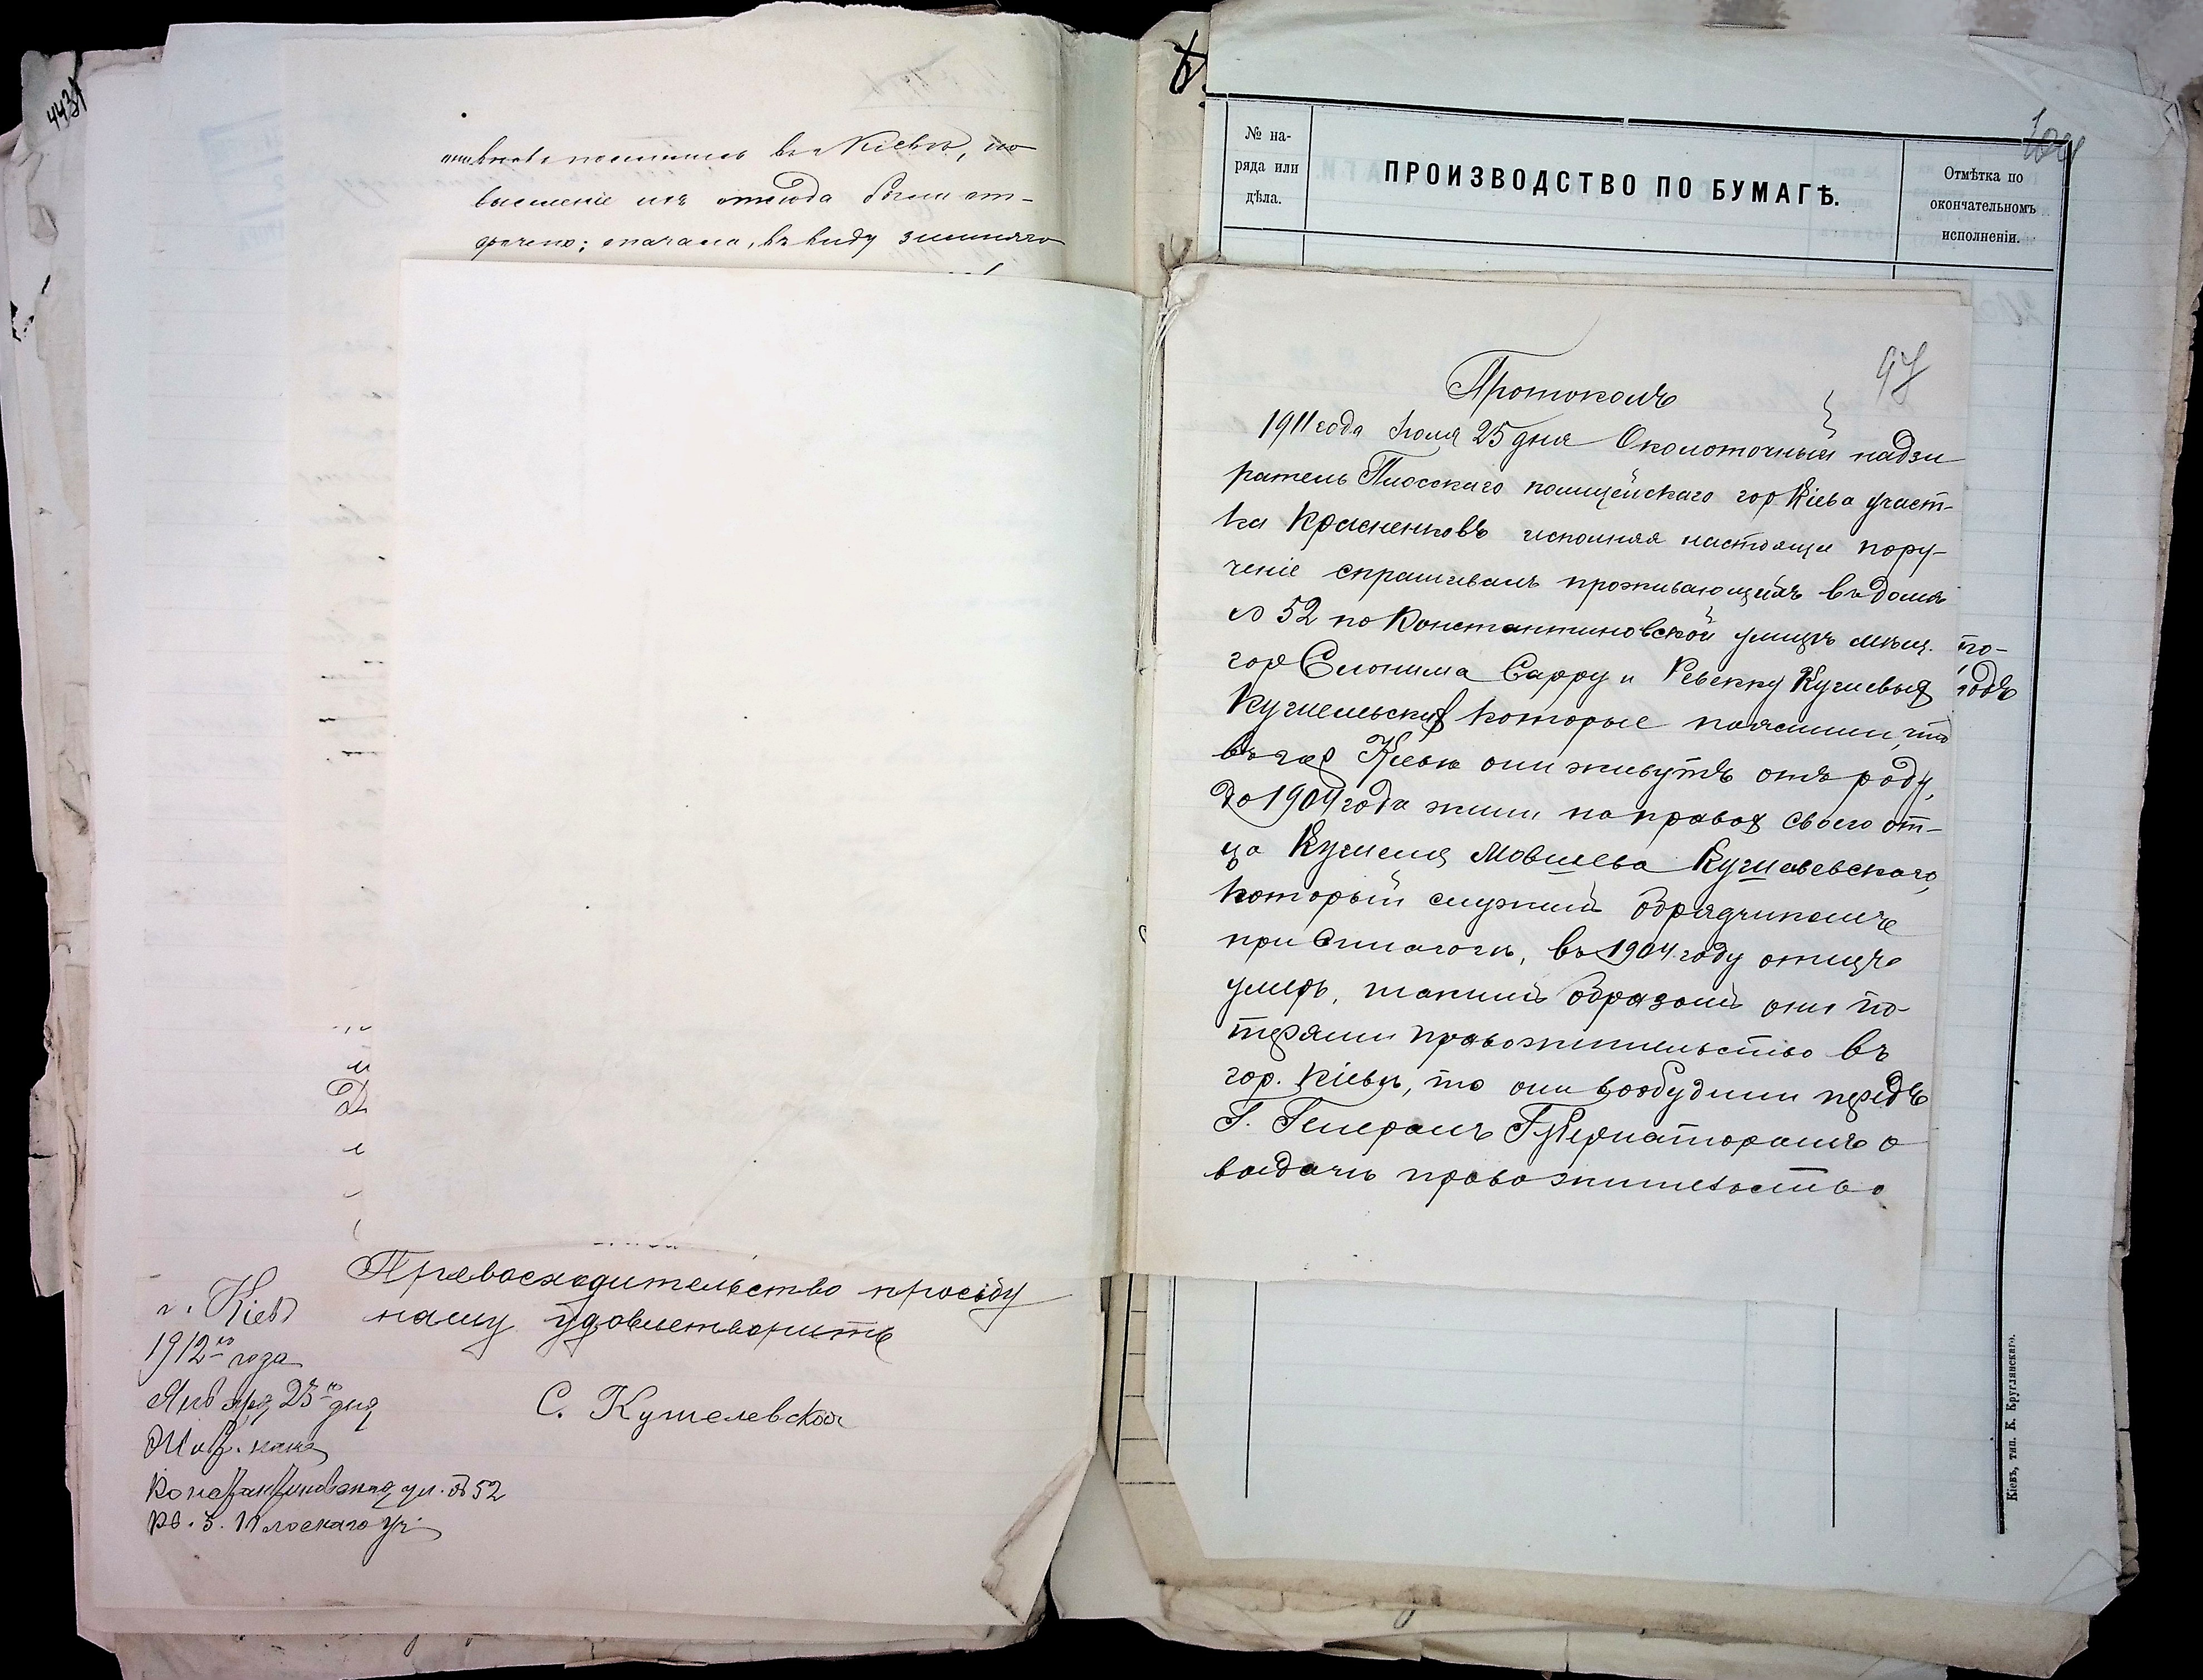 443
въ Кіевѣ, но
выселеніе изъ отсюда было от-
срочено; сначала, въ виду зимняго
Превосходительство просьбу
нашу удовлетворить
г. Кіевъ
1912го года
Января 23го дня
С. Кушелевская
Жит. наше
Константиновская ул. д 52
кв. 3. Плоскаго уч.
№ на-
ряда или
дѣла.
ПРОИЗВОДСТВО ПО БУМАГѢ.
Отмѣтка по
окончательномъ
исполненіи.
97
Протоколъ
1911 года Іюля 25 дня Околоточный надзи
ратель Плосскаго полицейскаго гор Кіева участ-
ка Красненковъ исполняя настояще пору-
ченіе спрашивалъ проживающихъ въ домѣ
№ 52 по Константиновской улицѣ мѣщ.
гор Слонима Сарру и Ревекку Кушелевы
Кушелевскія которые пояснили, что
въ гор Кіевѣ они живутъ отъ роду,
до 1904 года жили по правах своего от-
ца Кушеля Мовшева Кушелевскаго,
который служилъ обрядчикомъ
при Синагогѣ, въ 1904 году отецъ
умеръ, такимъ образомъ они по-
теряли правожительство въ
гор. Кіевѣ, то они возбудили передъ
Г. Генералъ Губернаторомъ о
выдачѣ правожительство
по-
годъ
Кіевъ, тип. К. Круглянскаго.